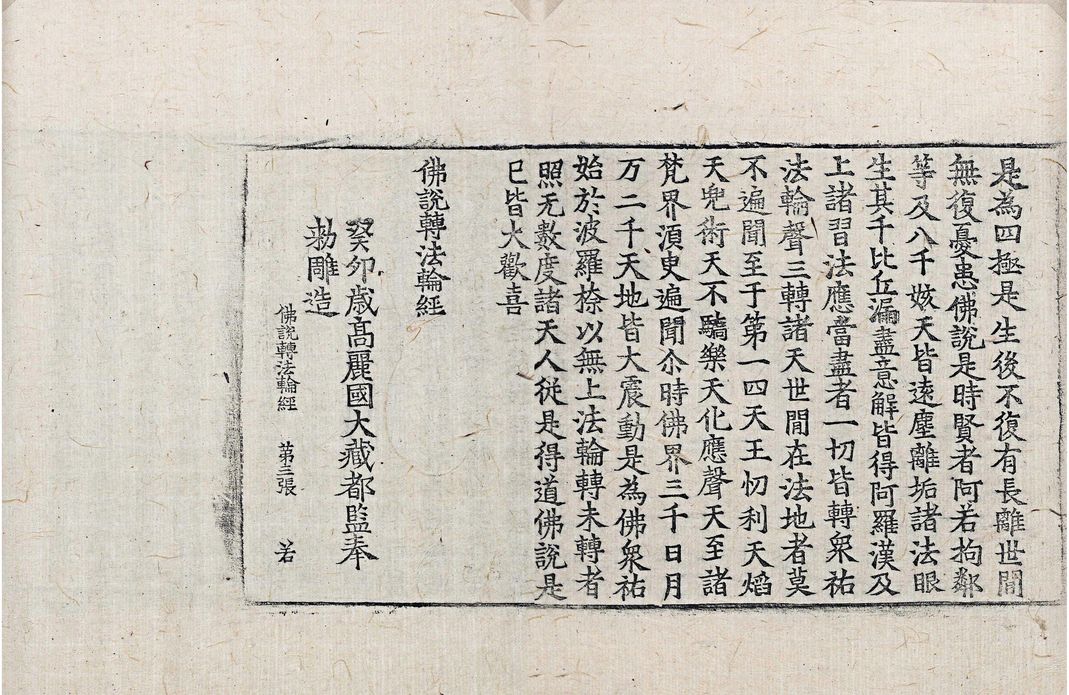 是為四極是生後不復有長離世間
無復憂患佛說是時賢者阿若拘鄰
等及八千姟天皆遠塵離垢諸法眼
生其千比丘漏盡意解皆得阿羅漢及
上諸習法應當盡者一切皆轉衆祐
法輪聲三轉諸天世間在法地者莫
不遍聞至于第一四天王忉利天焰
天兜術天不驕樂天化應聲天至諸
梵界湏臾遍聞尒時佛界三千日月
万二千天地皆大震動是為佛衆祐
始於波羅㮈以無上法輪轉未轉者
照无數度諸天人從是得道佛說是
已皆大歡喜
佛說轉法輪經
癸卯歳高麗國大藏都監奉
勑雕造
佛說轉法輪經 第三張 若